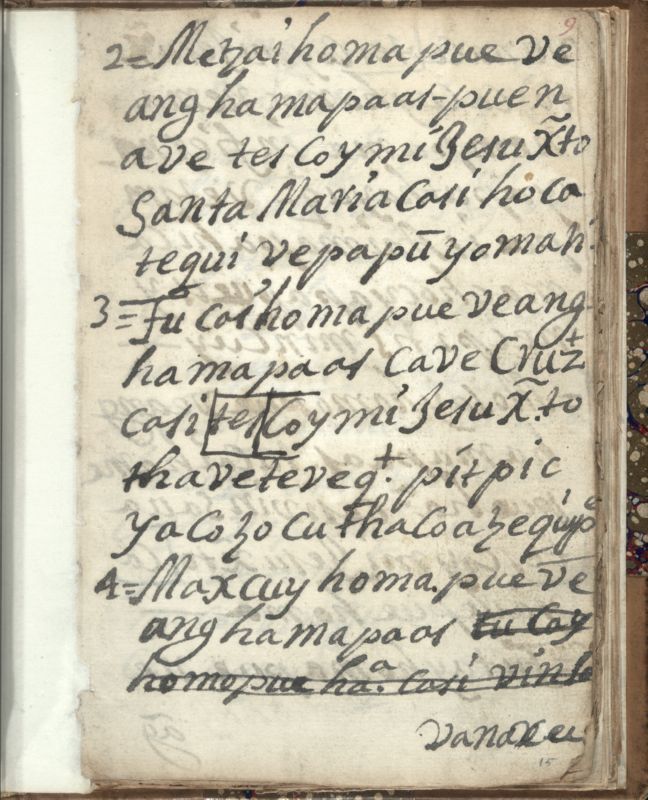 9
2= Metzaihoma pue ve
anghamapaas-puen
ave tes Coymi Jesu X̃to
Santa Maria Casi hoca
tequi ve papū yoman
3= Tu cashoma pue veang-
hamapaas cave Cruz
casi tes Coymi Jesu X̃.to
thaveteveq. pit pic
yacozocuthacoazequipo
4= Maxcuy homa. pue v̄e
anghamapaas tu Cay
homopue ha.ª Casi vinle
vanaxeu
15